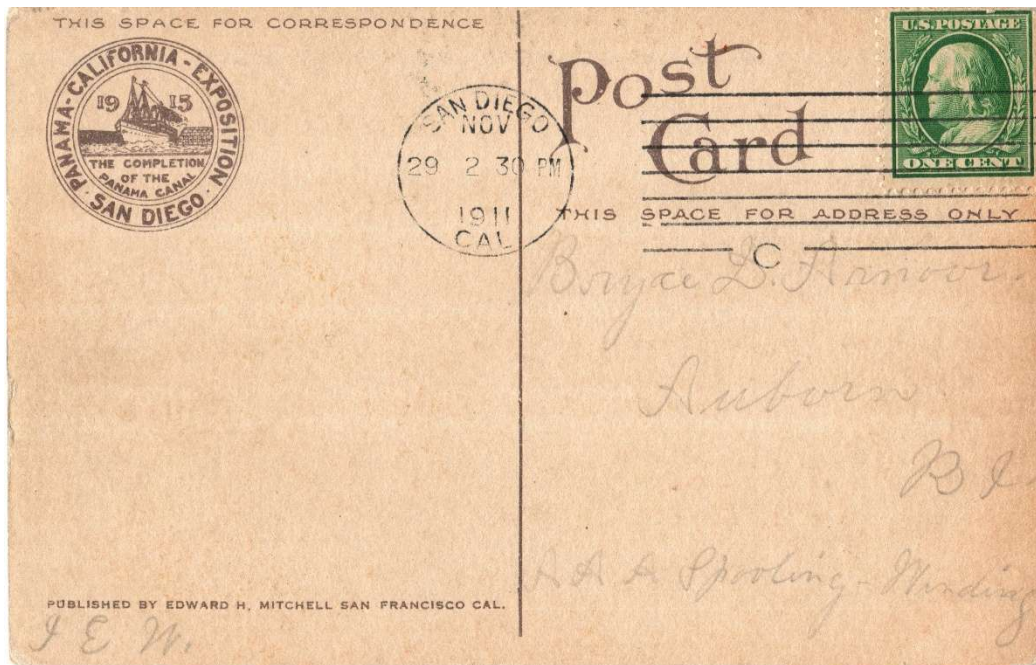 THIS SPACE FOR CORRESPONDENCE
PANAMA-CALIFORNIA-EXPOSITION
1915
THE COMPLETION
OF THE
PANAMA CANAL
SAN DIEGO
SAN DIEGO
NOV
29 2 30 PM
1911
CAL
Post
Card
U.S. POSTAGE
ONE CENT
THIS SPACE FOR ADDRESS ONLY
C
Bryce D.
Auborn
R I
A A A Spooling - Winding
PUBLISHED BY EDWARD H. MITCHELL SAN FRANCISCO CAL.
I E W.